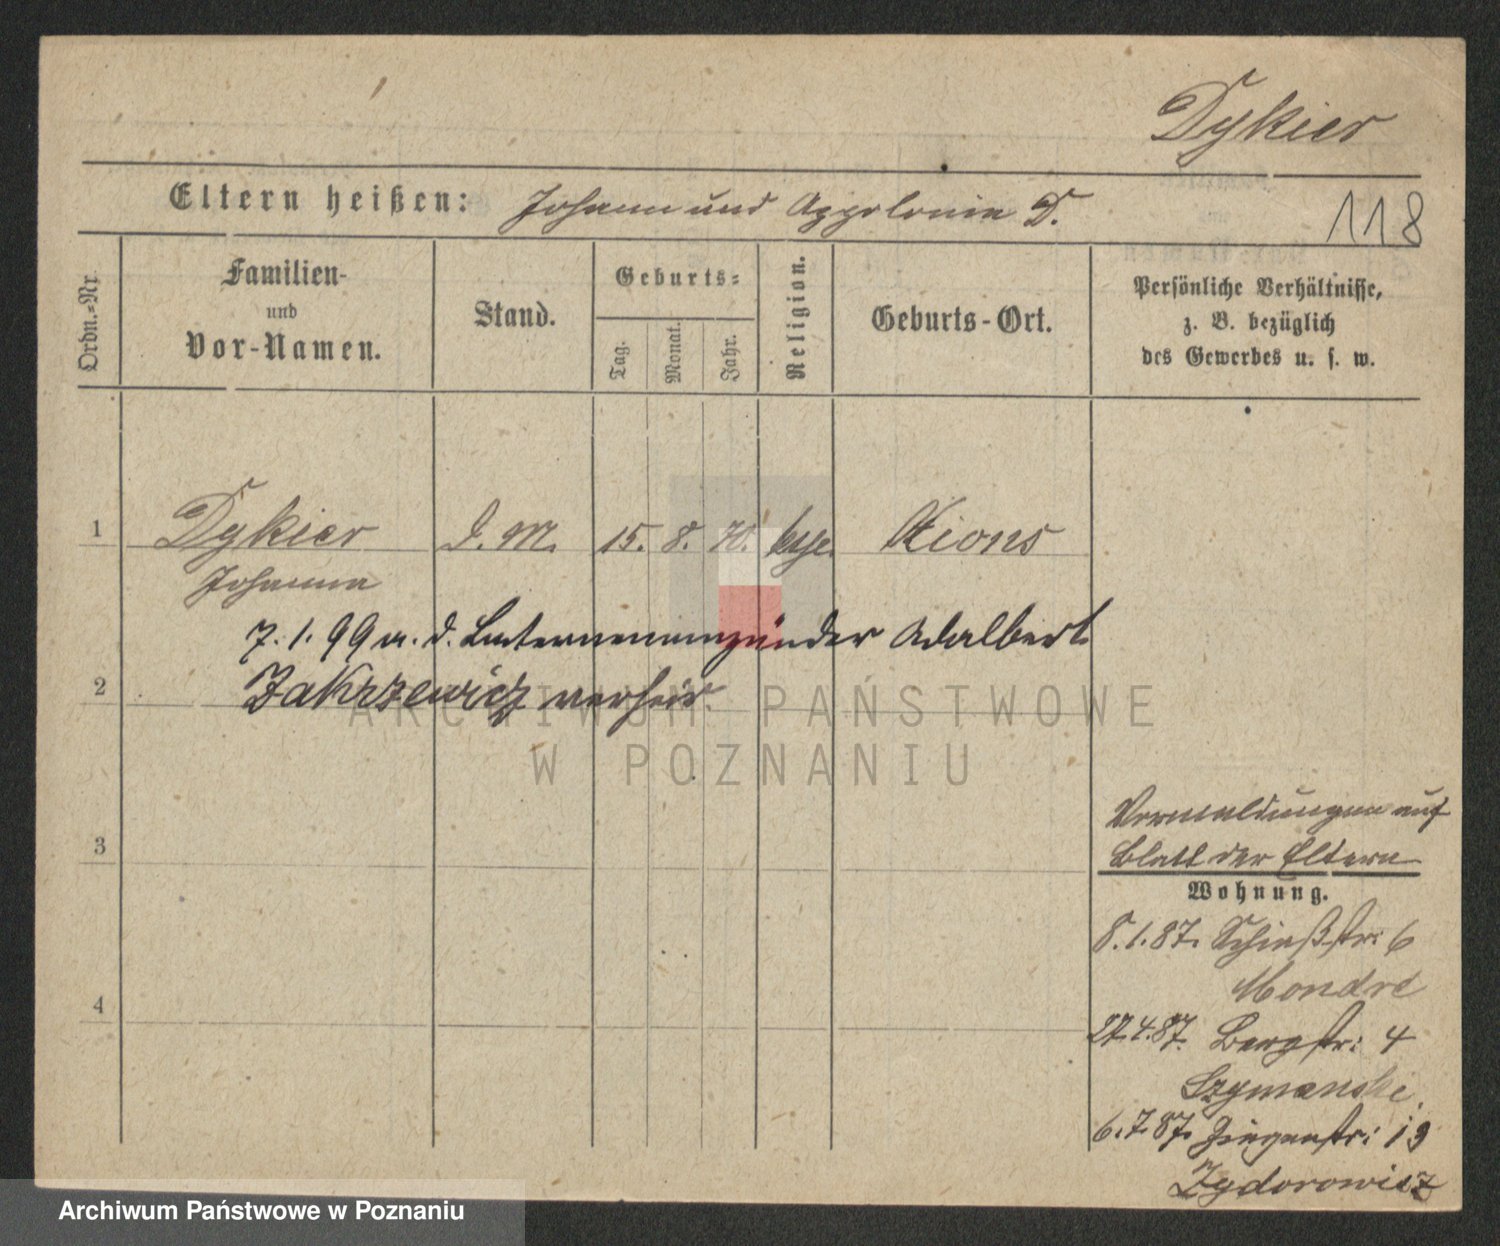 Dykier
Eltern heißen: Johann und Appolonia D.
118
Ordn.=Nr.
Familien-
und
Vor-Namen.
Stand.
Geburts=
Tag.
Monat.
Jahr.
Religion.
Geburts-Ort.
Persönliche Verhältnisse,
z. B. bezüglich
des Gewerbes u. s. w.
1 Dykier D. M. 15. 8. 70. Xions
Johanna
7. 1. 99 m. d. Laternenanzünder Adalbert
2 Zakrzewicz verheir.
ARCHIWUM PAŃSTWOWE
W POZNANIU
3
4
Vermeldungen auf
Blatt der Eltern
Wohnung.
8. 1. 87. Schießstr: 6
Mondré
27.4.87. Bergstr: 4
Szymanski.
6. 7. 87. Ziegenstr: 19
Zydorowicz
Archiwum Państwowe w Poznaniu